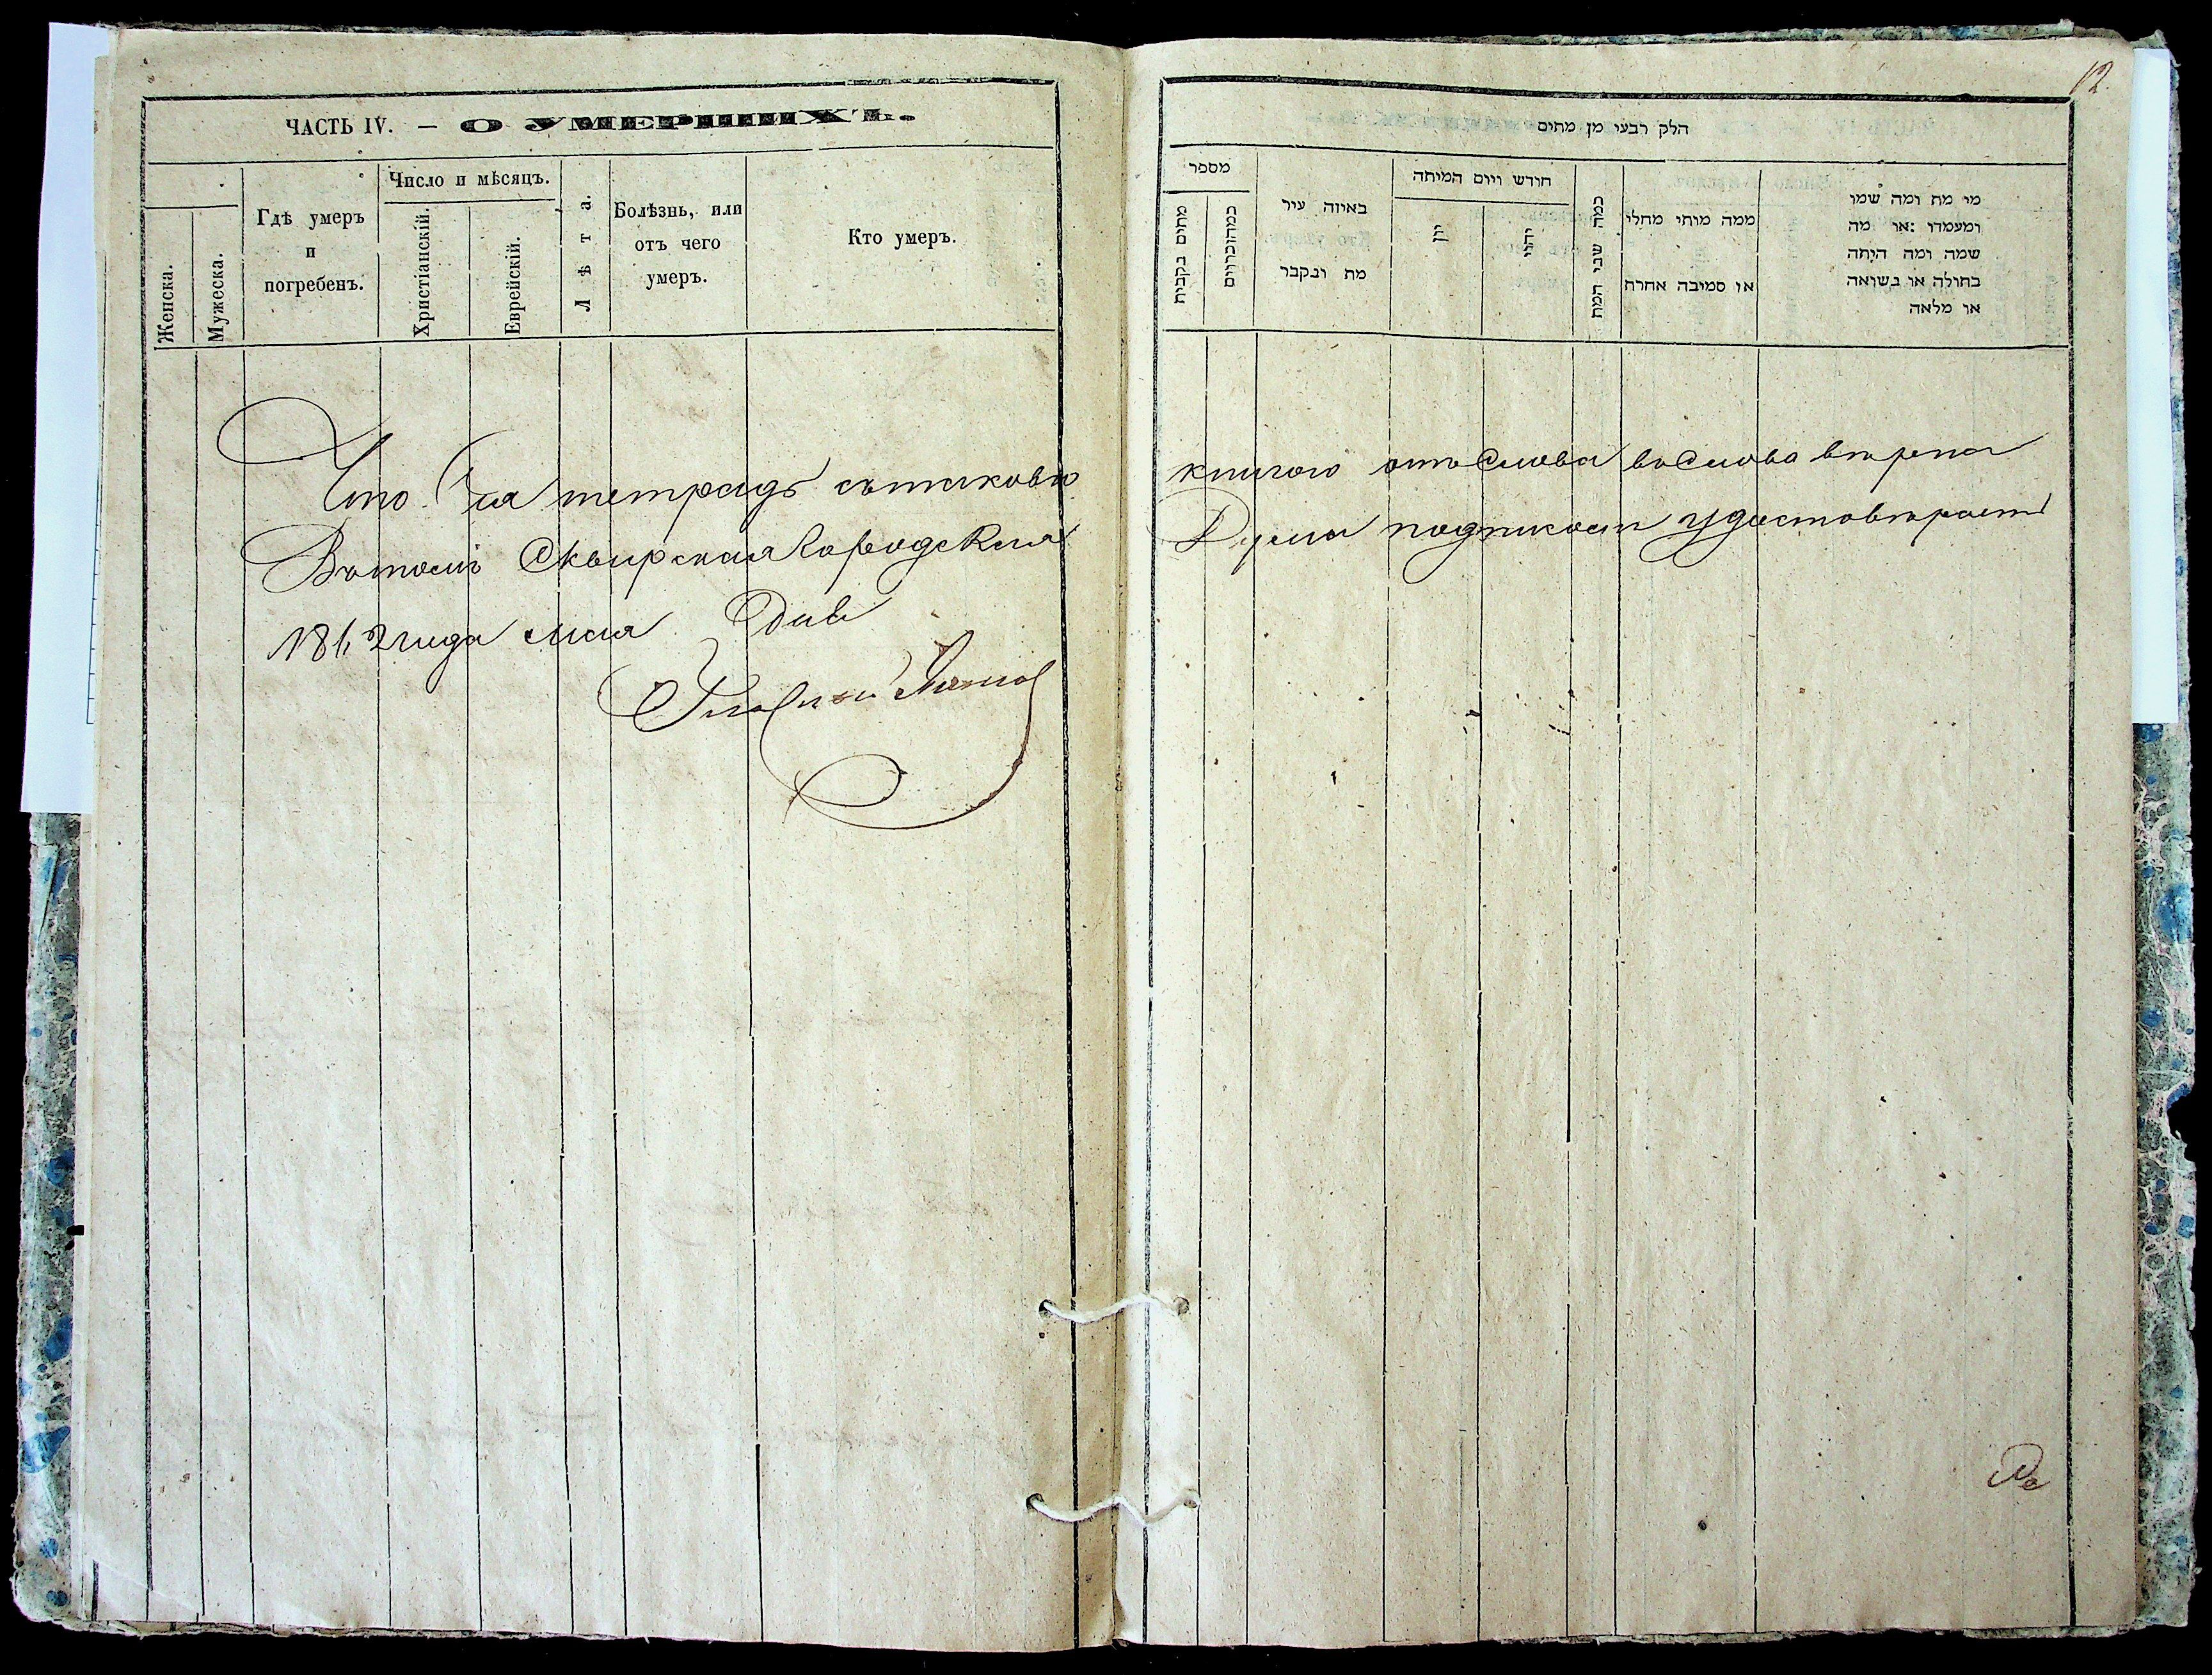 ЧАСТЬ IV. — О УМЕРШИХЪ.
Женска.
Мужеска.
Гдѣ умеръ
и
погребенъ.
Число и мѣсяцъ.
Христіанскій.
Еврейскій.
Лѣта.
Болѣзнь, или
отъ чего
умеръ.
Кто умеръ.
Что Сія тетрадь съ таковою
Вътомъ Сквирская Городская
1862 года мая дня
12.
הלק רבעי מן מתים
מספר
מתים בקבית
כמהזכרים
באיזה עיר
מת ונקבר
חודש ויום המיתה
יון
יהוי
כמה שני המת
ממה מותי מחלי
או סמיבה אחרת
מי מת ומה שמו
ומעמדו :או מה
שמה ומה היתה
בתולה או בשואה
או מלאה
книгою отъ Слова въ Слова вѣрна
Дума подписом удостовѣряетъ